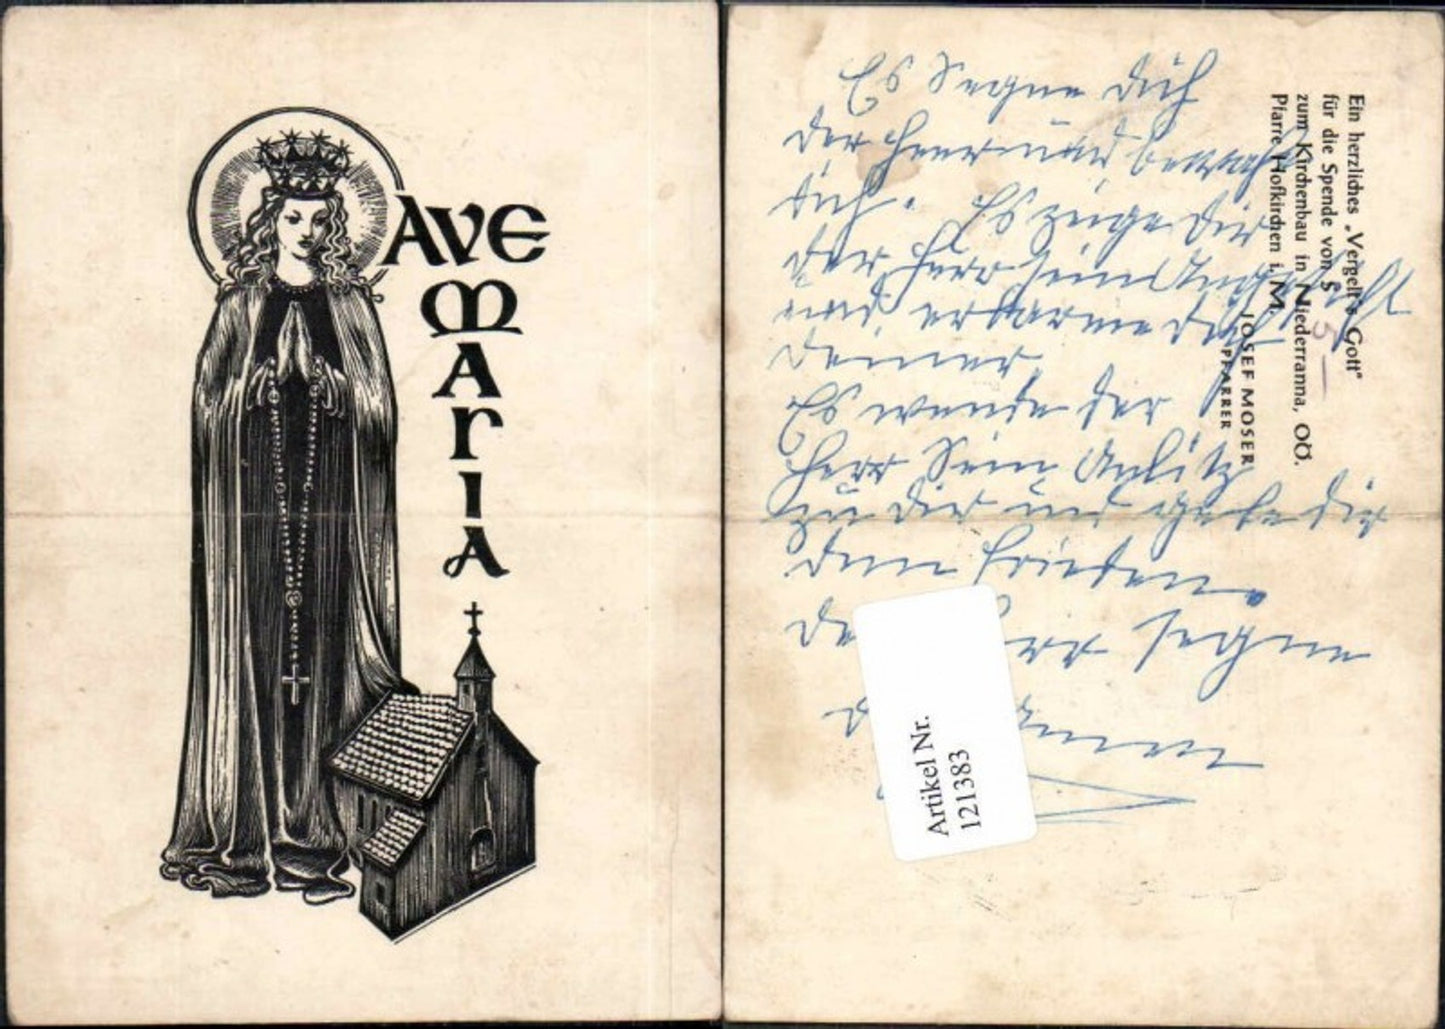 AVE
MARIA
Es Segne Dich
der Herr und bewahre
dich. Es zeige dir
der Herr sein Angesicht
und erbarme dich
deiner
Es wende der
Herr Sein Anlitz
zu dir und gebe dir
den Frieden.
der Herr segne
Ein herzliches „Vergelt's Gott"
für die Spende von S 5 —
zum Kirchenbau in Niederranna, OÖ.
Pfarre Hofkirchen i. M.
JOSEF MOSER
PFARRER
Artikel Nr.
121383